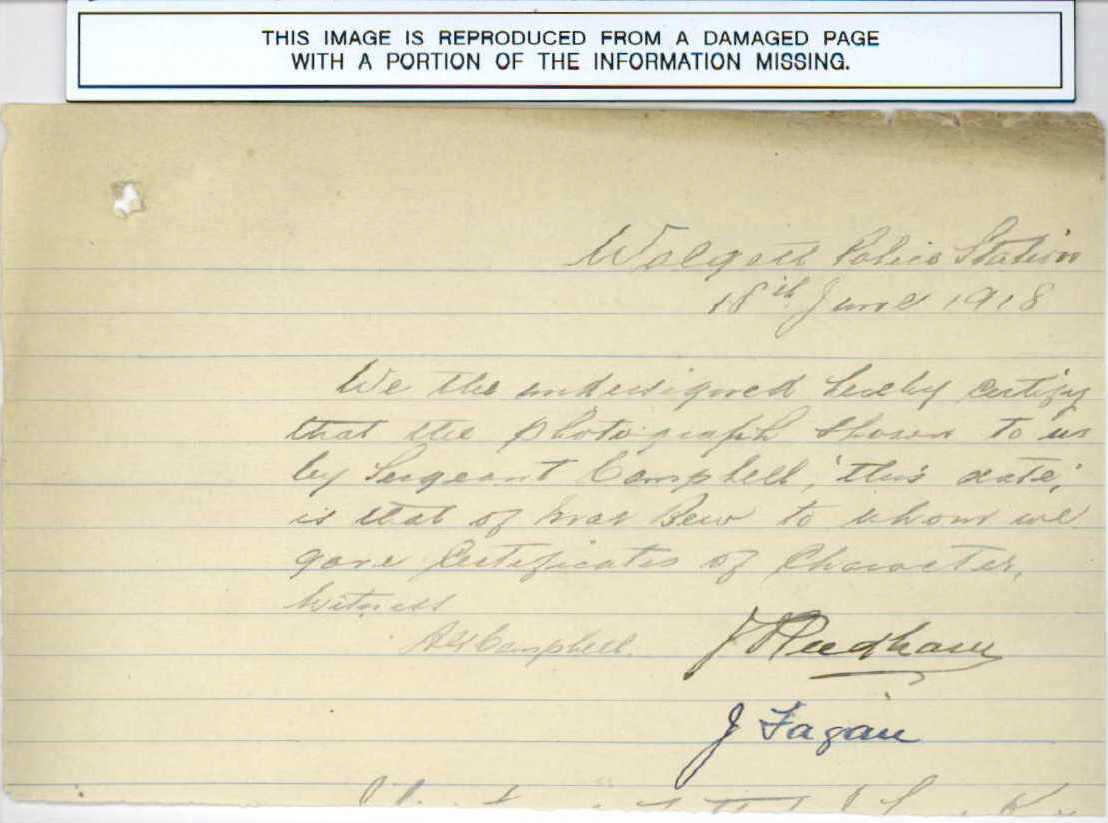 THIS IMAGE IS REPRODUCED FROM A DAMAGED PAGE
WITH A PORTION OF THE INFORMATION MISSING.
Walgett Police Station
18th June 1918
We the undersigned hereby certify
that the photograph shown to us
by Sergeant Campbell, this date,
is that of Bew to whom we
gave Certificates of Character.
Witness
Campbell.
J Needham
J Fagan